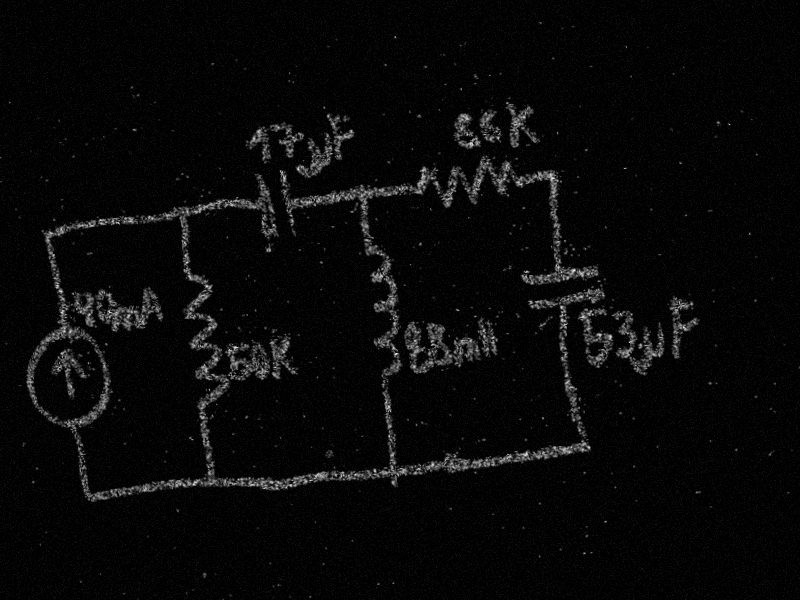 17µF
86K
90mA
50K
88mH
53µF